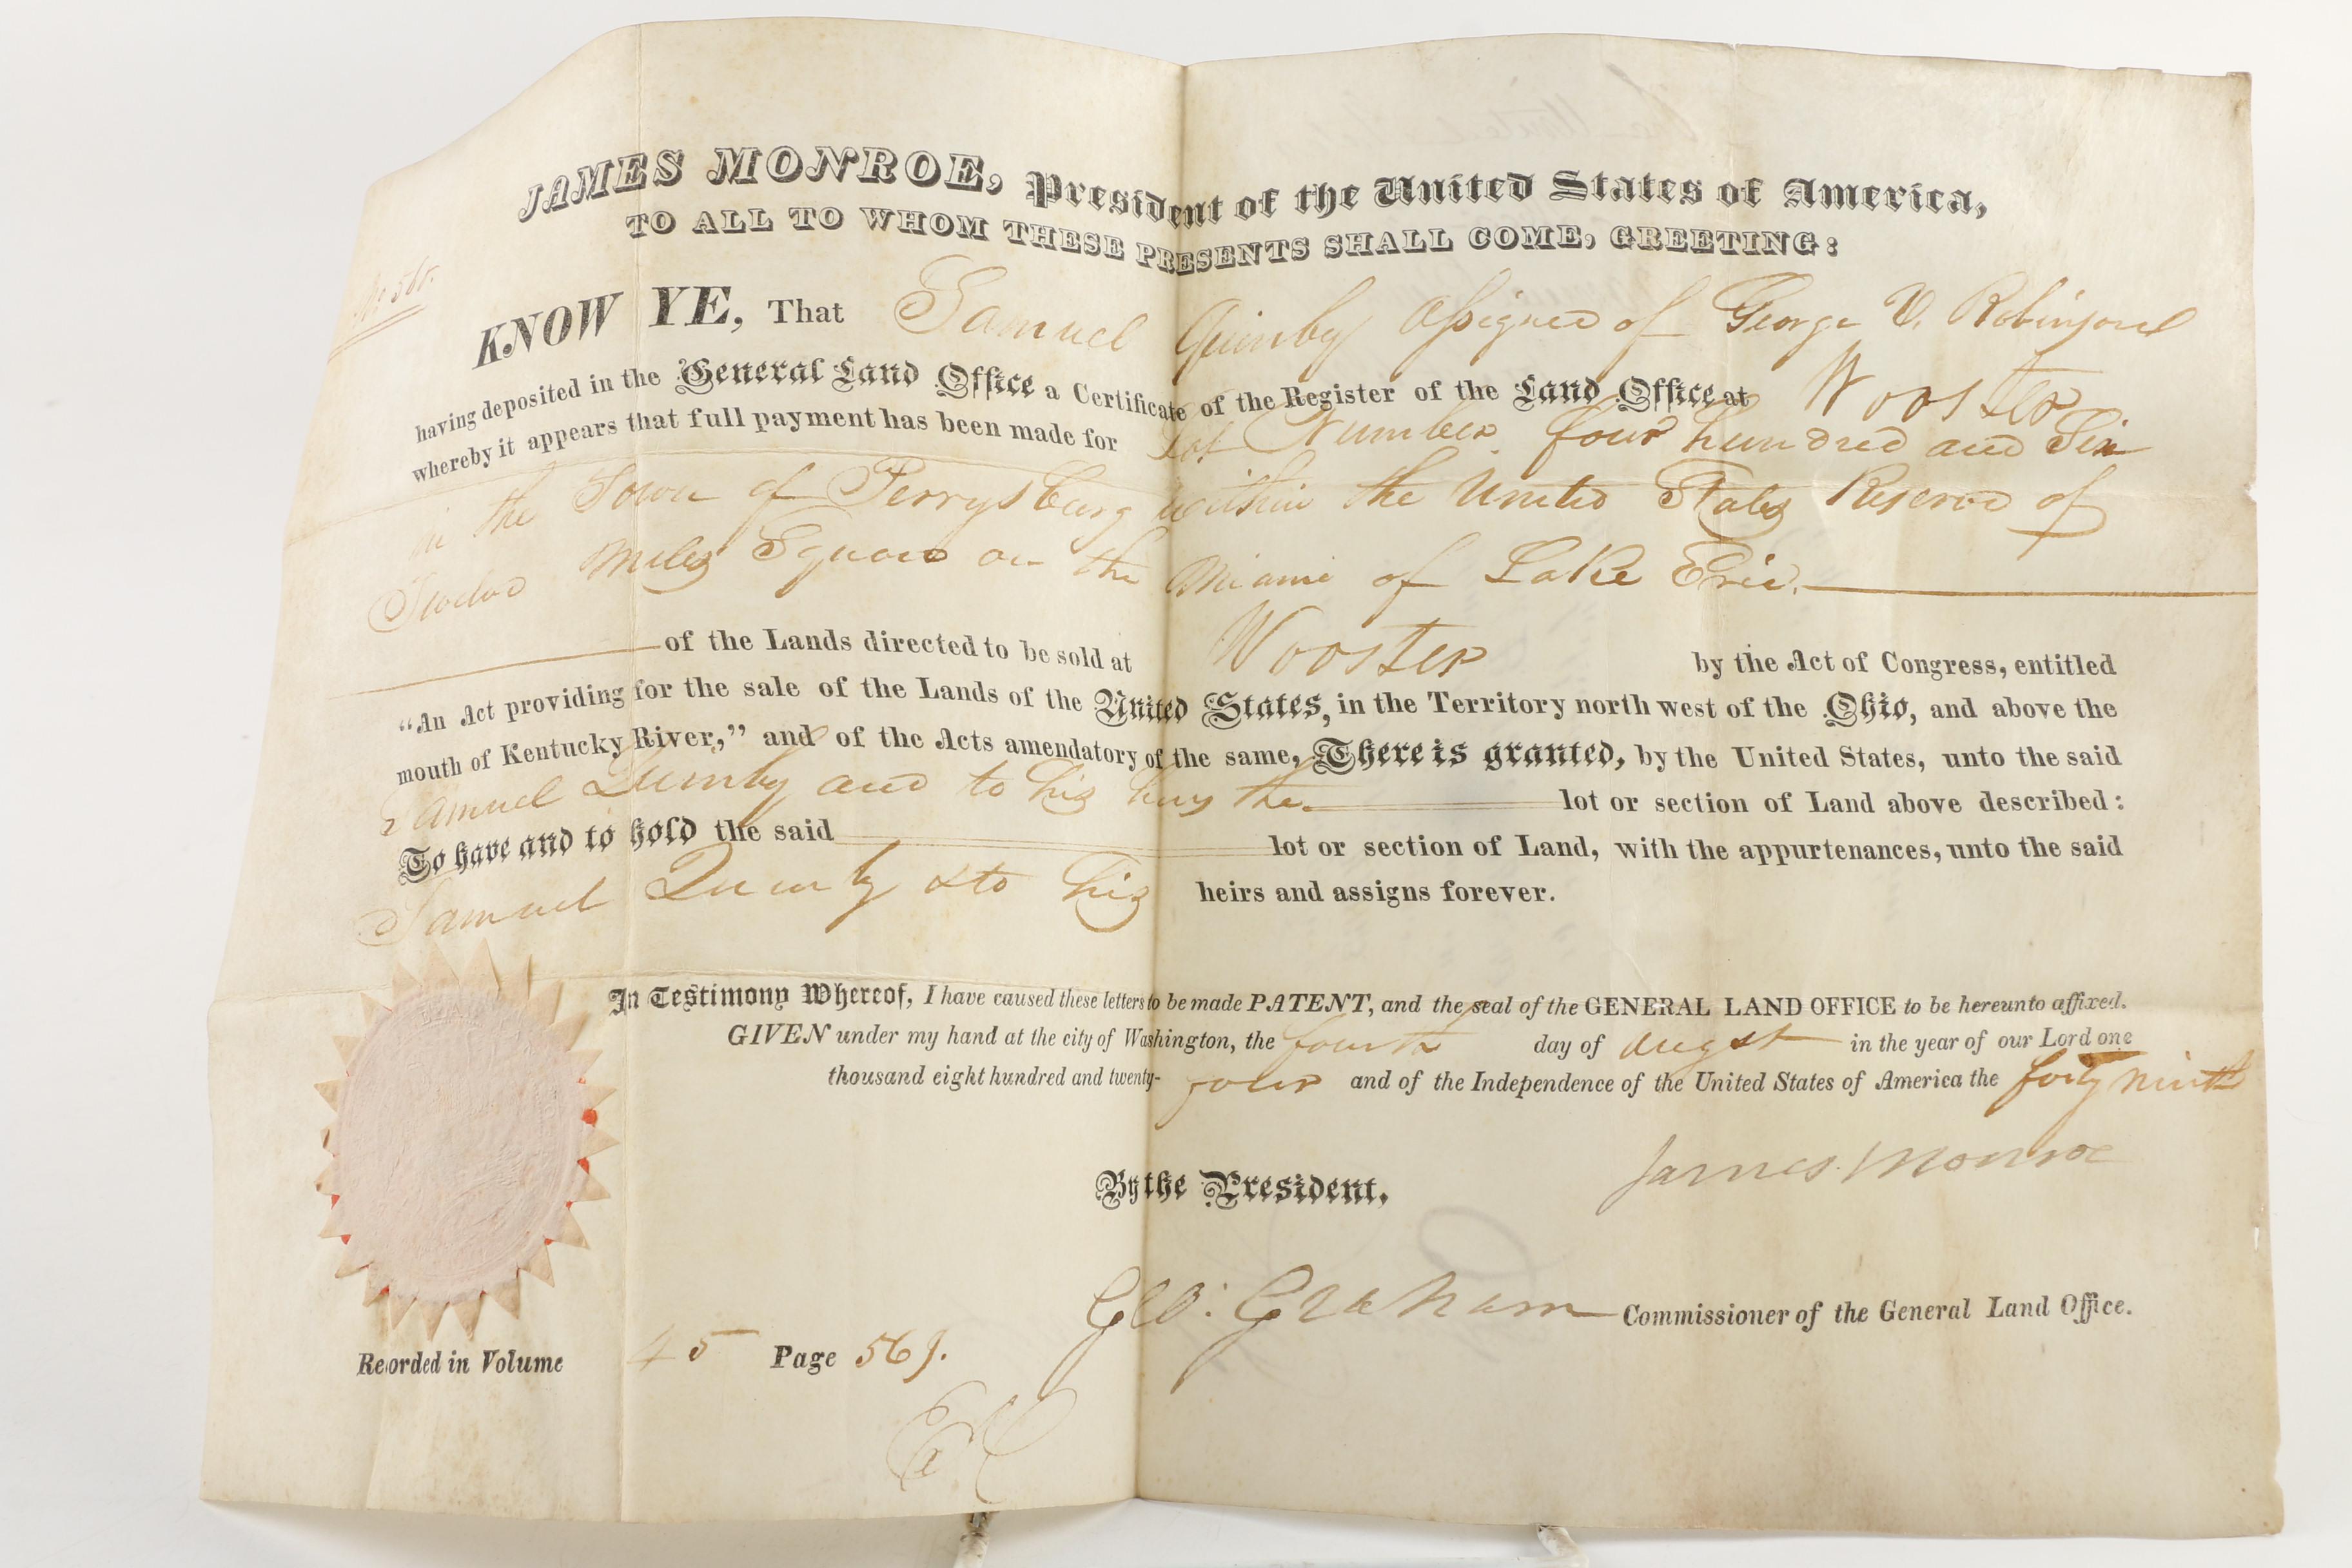 JAMES MONROE, President of the United States of America,
TO ALL TO WHOM THESE PRESENTS SHALL COME, GREETING:
KNOW YE, That Samuel Quinby Assignee of George V. Robinson
having deposited in the General Land Office a Certificate of the Register of the Land Office at Wooster
whereby it appears that full payment has been made for Lot Number four hundred and Six
in the Town of Perrysburg within the United States Reserve of
Twelve Miles Square on the Miami of Lake Erie.
of the Lands directed to be sold at Wooster by the Act of Congress, entitled
"An Act providing for the sale of the Lands of the United States, in the Territory north west of the Ohio, and above the
mouth of Kentucky River," and of the Acts amendatory of the same, There is granted, by the United States, unto the said
Samuel Quinby and to his heirs the lot or section of Land above described:
To have and to hold the said lot or section of Land, with the appurtenances, unto the said
Samuel Quinby & to his heirs and assigns forever.
In Testimony Whereof, I have caused these letters to be made PATENT, and the seal of the GENERAL LAND OFFICE to be hereunto affixed.
GIVEN under my hand at the city of Washington, the fourth day of Augst in the year of our Lord one
thousand eight hundred and twenty-four and of the Independence of the United States of America the forty ninth
James Monroe
By the President,
Geo: Graham Commissioner of the General Land Office.
Recorded in Volume 45 Page